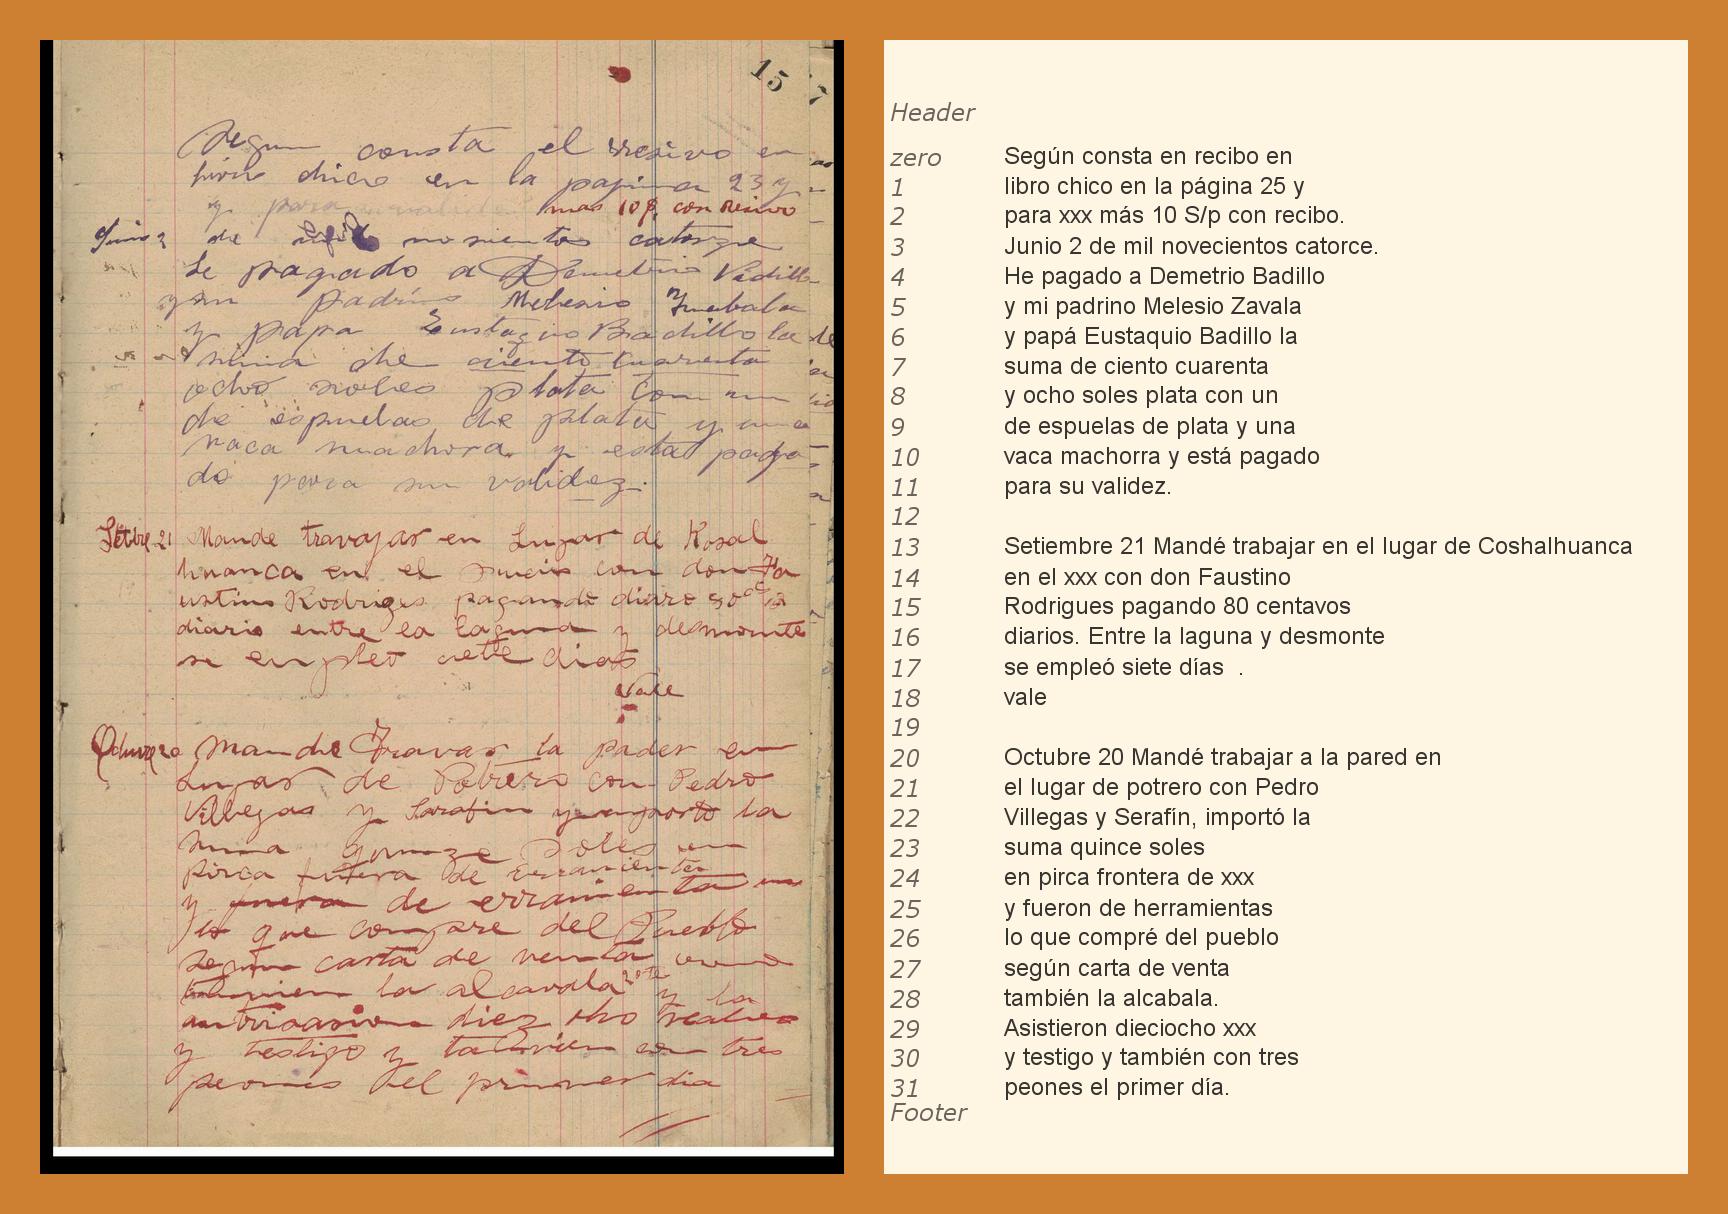 15 7
Segun consta el rresivo en
livro chico en la pagina 23 y
y para
mas 10 p. con Resivo
Junio 2 de nosientos catorze
se pagado a Demetrio Vadillo
y su padrino Melesio
y papa Eustaquio Badillo la
suma de ciento cuarenta
ocho soles plata con un
de espuelas de plata y una
vaca machora y esta paga
do para su validez.
Setbre 21 Mande travajar en Lugar de Kosal
huanca en el con don Fa
ustino Rodriges pagando diaro 80
diario entre la laguna y desmonte
se enpleo siete dias
Vale
Octuvre 20 Mande Travar la pader en
Lugar de Potrero con Pedro
Villegas y Serafin y importo la
suma quinze soles en
pirca de erramienta
y fuera de erramienta
lo que compre del Pueblo
segun carta de venta
tanvien la alcavala y la
diez ocho reales
y testigo y tanvien con tres
peones el primer dia
Header
zero Según consta en recibo en
1 libro chico en la página 25 y
2 para xxx más 10 S/p con recibo.
3 Junio 2 de mil novecientos catorce.
4 He pagado a Demetrio Badillo
5 y mi padrino Melesio Zavala
6 y papá Eustaquio Badillo la
7 suma de ciento cuarenta
8 y ocho soles plata con un
9 de espuelas de plata y una
10 vaca machorra y está pagado
11 para su validez.
12
13 Setiembre 21 Mandé trabajar en el lugar de Coshalhuanca
14 en el xxx con don Faustino
15 Rodrigues pagando 80 centavos
16 diarios. Entre la laguna y desmonte
17 se empleó siete días .
18 vale
19
20 Octubre 20 Mandé trabajar a la pared en
21 el lugar de potrero con Pedro
22 Villegas y Serafín, importó la
23 suma quince soles
24 en pirca frontera de xxx
25 y fueron de herramientas
26 lo que compré del pueblo
27 según carta de venta
28 también la alcabala.
29 Asistieron dieciocho xxx
30 y testigo y también con tres
31 peones el primer día.
Footer